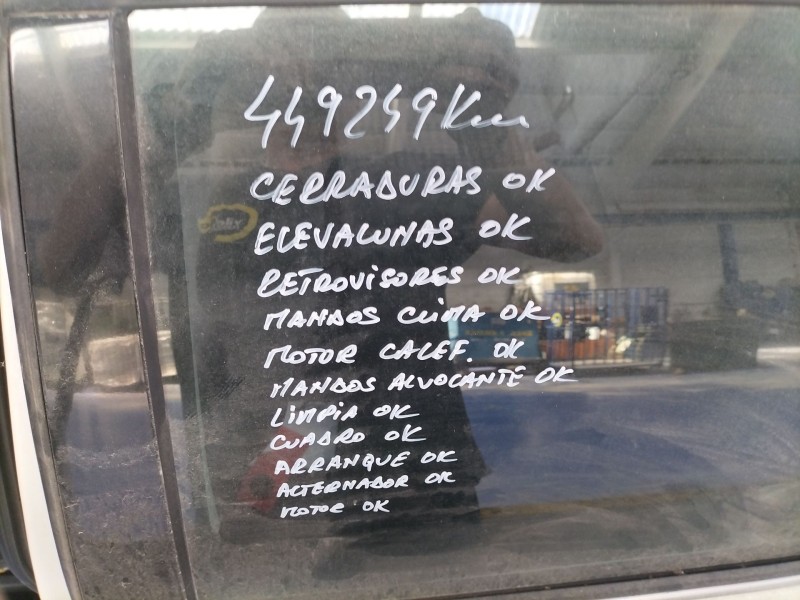 449249 Km
CERRADURAS OK
ELEVALUNAS OK
RETROVISORES OK
MANDOS CLIMA OK
MOTOR CALEF. OK
MANDOS ALVOCANTE OK
LIMPIA OK
CUADRO OK
ARRANQUE OK
ALTERNADOR OK
MOTOR OK